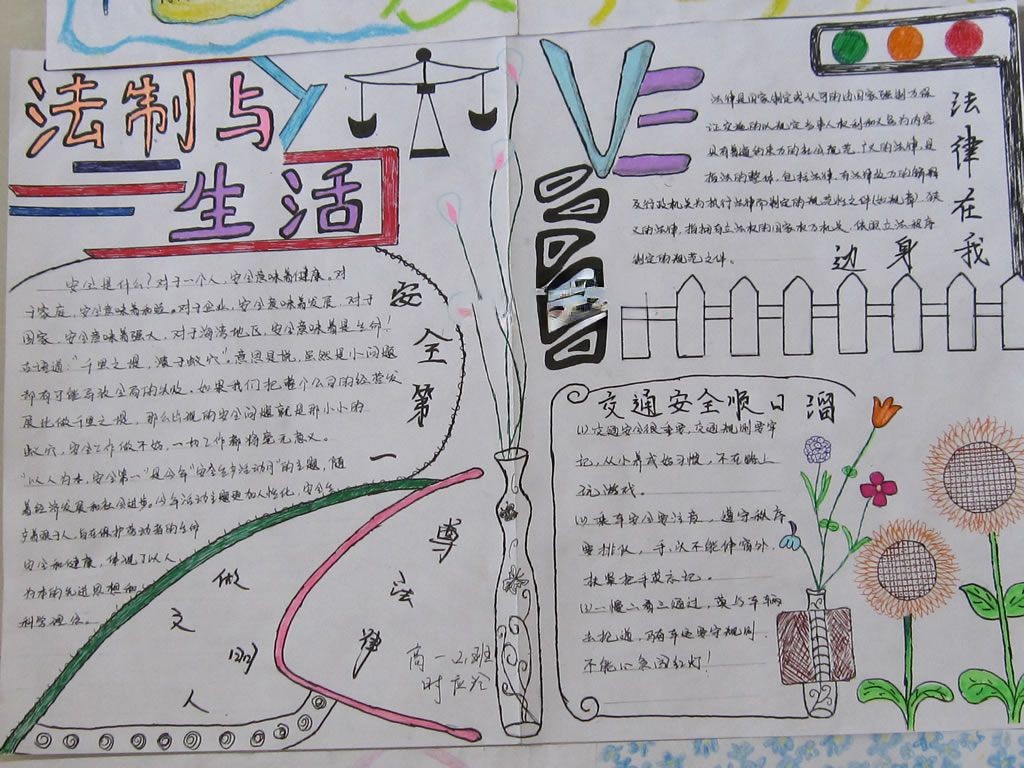 法制与
生活
安全是什么?对于一个人,安全意味着健康。对
于家庭,安全意味着和睦。对于企业,安全意味着发展,对于
国家,安全意味着强大,对于海湾地区,安全意味着是生命!
古语道:"千里之堤,溃于蚁穴"。意思是说,虽然是小问题
都有可能导致全局的失败。如果我们把整个公司的经营发
展比做千里之堤,那么出现的安全问题就是那小小的
蚁穴,安全工作做不好,一切工作都将毫无意义。
"以人为本,安全第一"是今年"安全生产活动月"的主题,随
着经济发展和社会进步。今年活动主题更加人性化,安全生
产着眼于人,旨在保护劳动者的生命
安全和健康,体现了以人
为本的先进思想和
科学理念。
安全第一
做文明人
尊法律
高一21班
VE
法律是国家制定或认可的由国家强制力保
证实施的以规定当事人权利和义务为内容
具有普遍约束力的社会规范。广义的法律,是
指法的整体,包括法律、有法律效力的解释
及行政机关为执行法律而制定的规范性文件(如规章)。狭
义的法律,指拥有立法权的国家权力机关,依照立法程序
制定的规范文件。
法律在我
身边
交通安全顺口溜
(1)交通安全很重要,交通规则要牢
记,从小养成好习惯,不在路上
玩游戏。
(2)乘车安全要注意,遵守秩序
要排队,手、头不能伸窗外,
扶紧把手莫忘记。
(3)一慢二看三通过,莫与车辆
去抢道,骑车还要守规则
不能心急闯红灯!